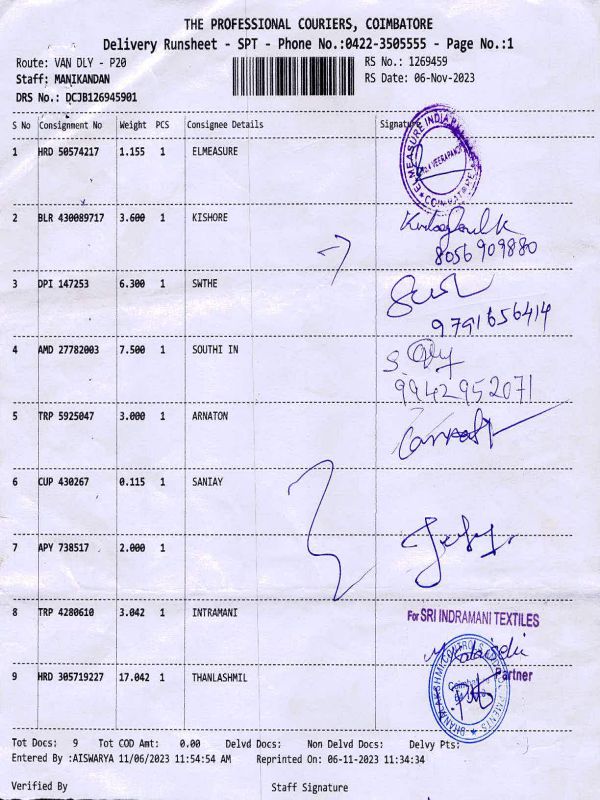 THE PROFESSIONAL COURIERS, COIMBATORE
Delivery Runsheet - SPT - Phone No.:0422-3505555 - Page No.:1
Route: VAN DLY - P20 RS No.: 1269459
Staff: MANIKANDAN RS Date: 06-Nov-2023
DRS No.: DCJB126945901
S No Consignment No Weight PCS Consignee Details Signature
1 HRD 50574217 1.155 1 ELMEASURE
ELMEASURE INDIA COIMBATORE
2 BLR 430089717 3.600 1 KISHORE
8056909880
3 DPI 147253 6.300 1 SWTHE
9791656414
4 AMD 27782003 7.500 1 SOUTHI IN
9942952071
5 TRP 5925047 3.000 1 ARNATON
6 CUP 430267 0.115 1 SANIAY
7 APY 738517 2.000 1
8 TRP 4280610 3.042 1 INTRAMANI
For SRI INDRAMANI TEXTILES
Partner
9 HRD 305719227 17.042 1 THANLASHMIL
Tot Docs: 9 Tot COD Amt: 0.00 Delvd Docs: Non Delvd Docs: Delvy Pts:
Entered By :AISWARYA 11/06/2023 11:54:54 AM Reprinted On: 06-11-2023 11:34:34
Verified By Staff Signature